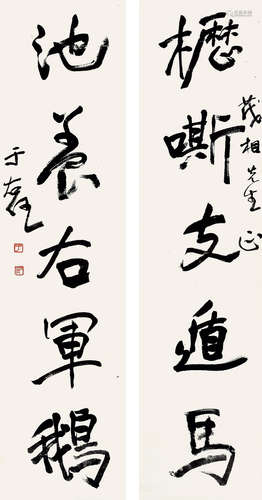 櫪嘶支遁馬
茂相先生正
池養右軍鵝
于右任